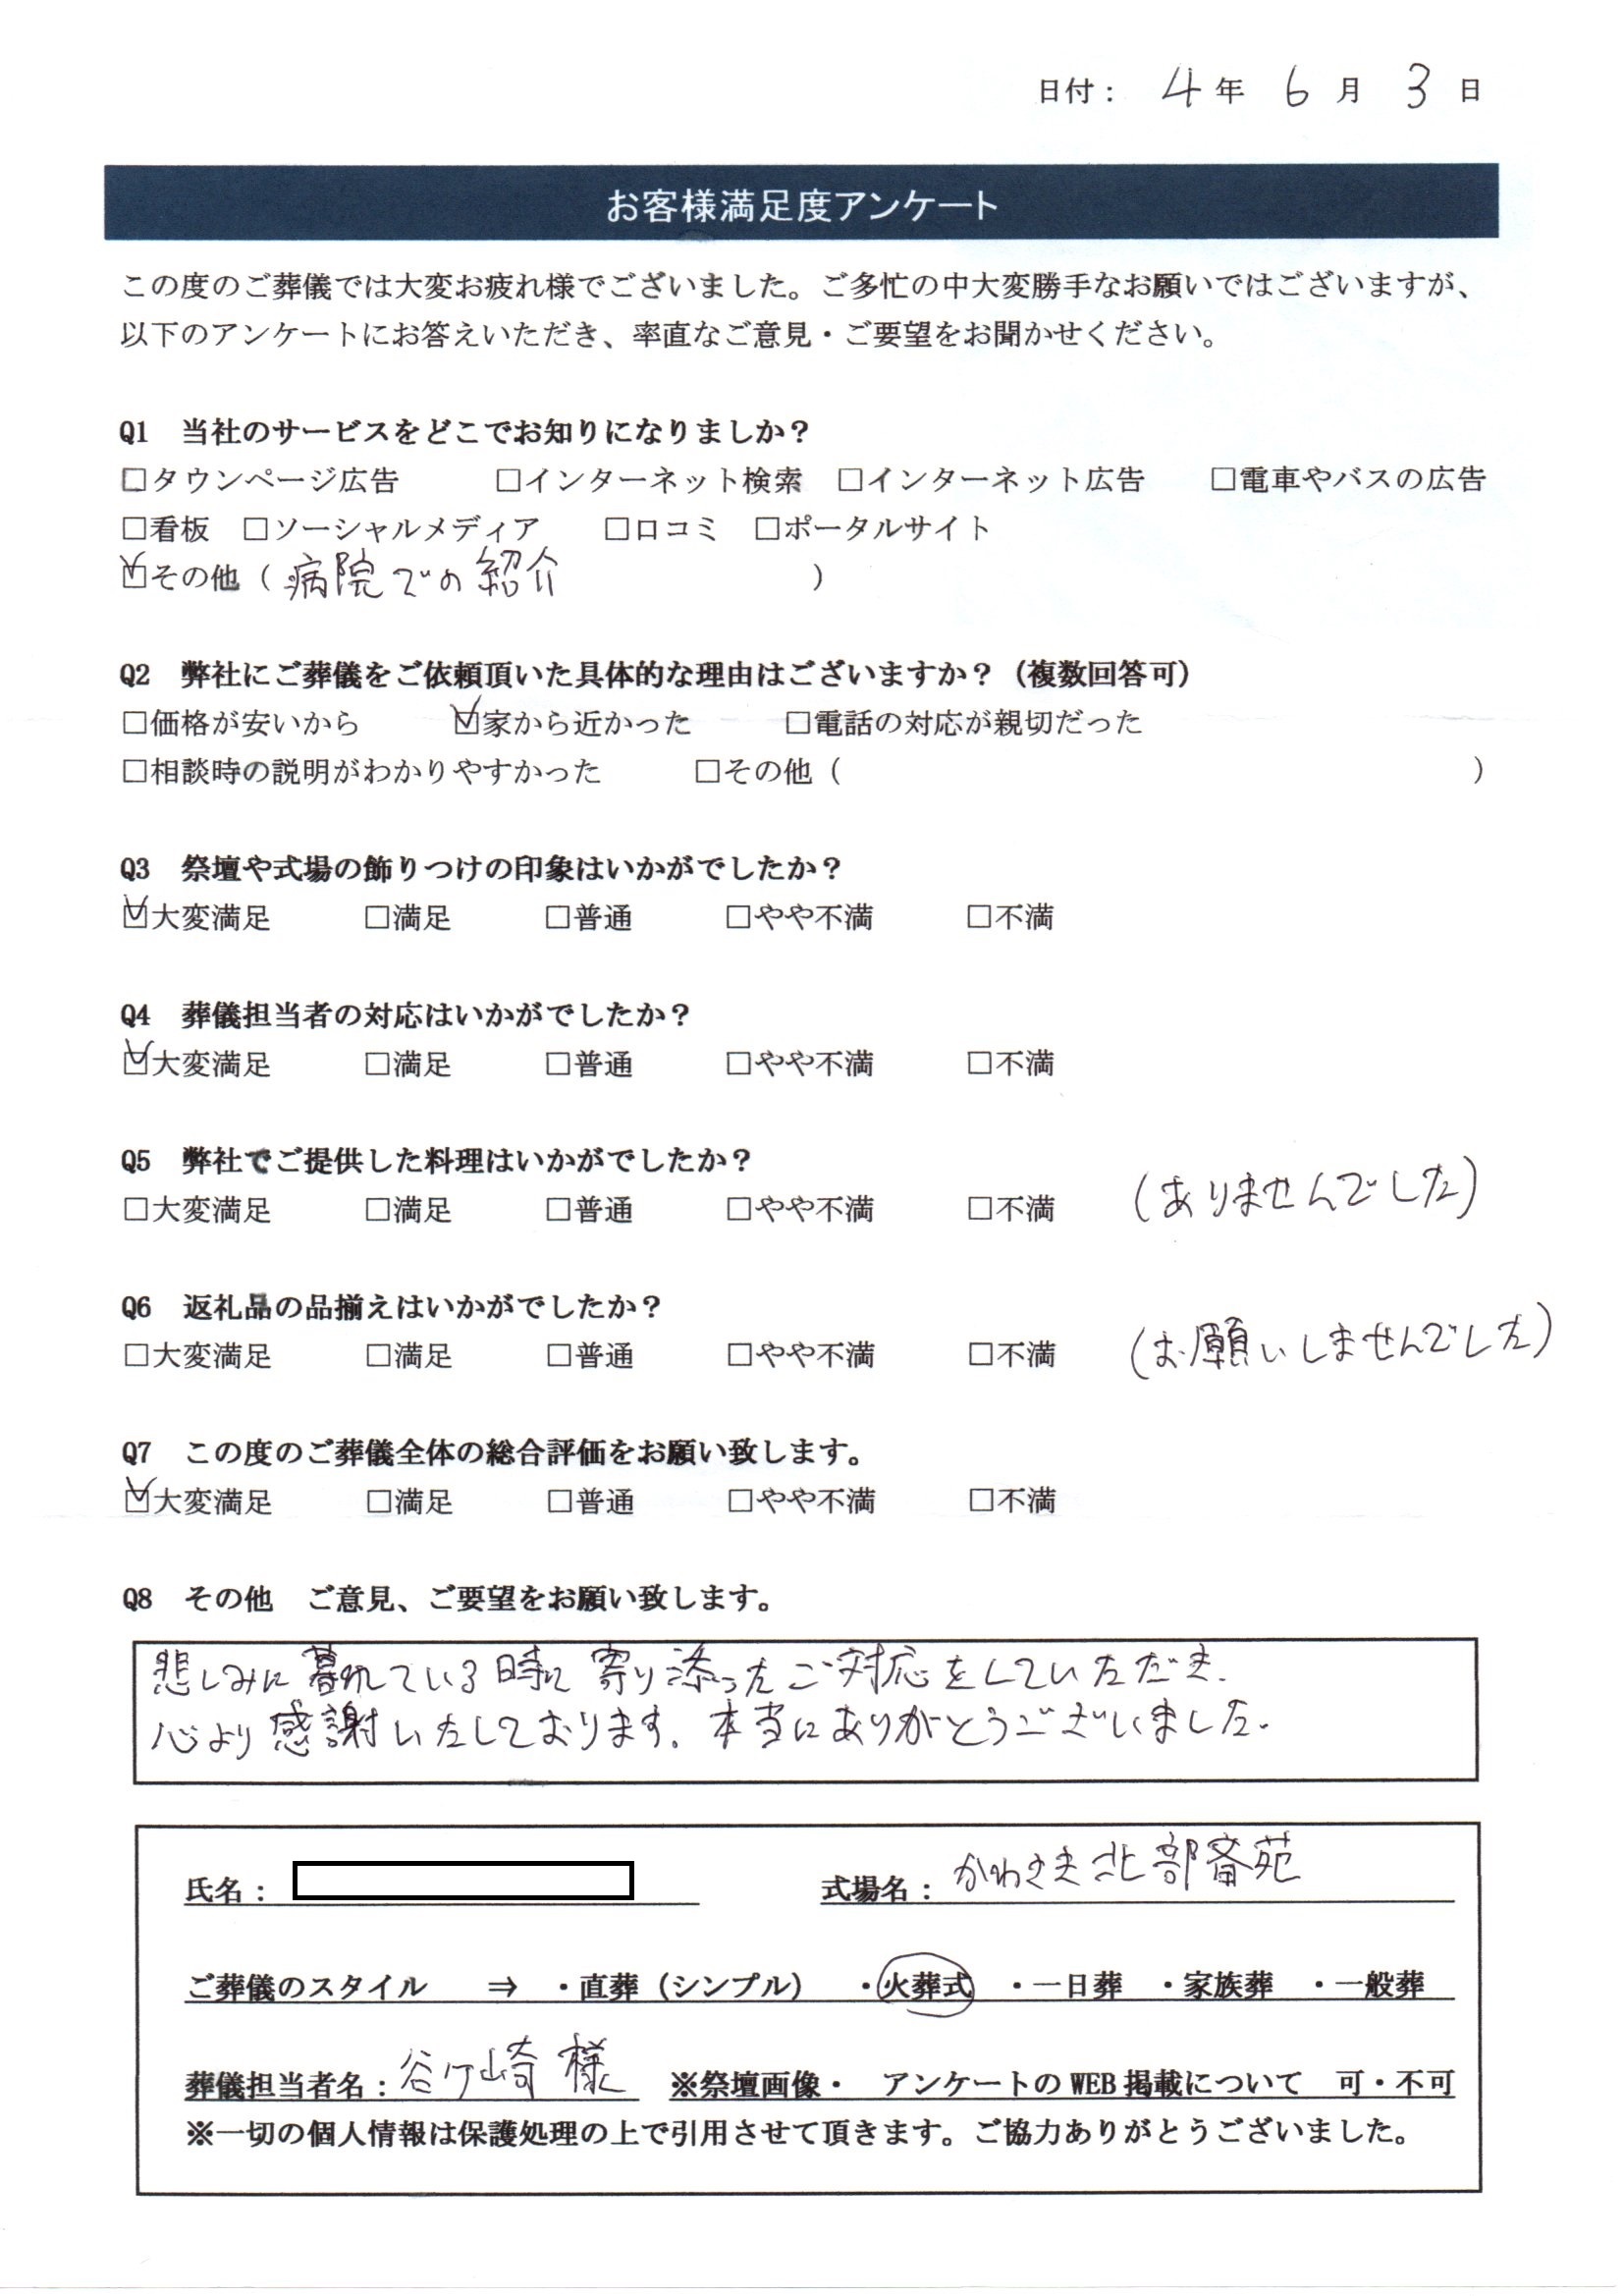 日付： 4 年 6 月 3 日
お客様満足度アンケート
この度のご葬儀では大変お疲れ様でございました。ご多忙の中大変勝手なお願いではございますが、
以下のアンケートにお答えいただき、率直なご意見・ご要望をお聞かせください。
Q1 当社のサービスをどこでお知りになりましか？
□タウンページ広告 □インターネット検索 □インターネット広告 □電車やバスの広告
□看板 □ソーシャルメディア □口コミ □ポータルサイト
☑その他（病院での紹介）
Q2 弊社にご葬儀をご依頼頂いた具体的な理由はございますか？（複数回答可）
□価格が安いから ☑家から近かった □電話の対応が親切だった
□相談時の説明がわかりやすかった □その他（ ）
Q3 祭壇や式場の飾りつけの印象はいかがでしたか？
☑大変満足 □満足 □普通 □やや不満 □不満
Q4 葬儀担当者の対応はいかがでしたか？
☑大変満足 □満足 □普通 □やや不満 □不満
Q5 弊社でご提供した料理はいかがでしたか？
□大変満足 □満足 □普通 □やや不満 □不満 （ありませんでした）
Q6 返礼品の品揃えはいかがでしたか？
□大変満足 □満足 □普通 □やや不満 □不満 （お願いしませんでした）
Q7 この度のご葬儀全体の総合評価をお願い致します。
☑大変満足 □満足 □普通 □やや不満 □不満
Q8 その他 ご意見、ご要望をお願い致します。
悲しみに暮れている時に寄り添ったご対応をしていただき、
心より感謝いたしております。本当にありがとうございました。
氏名： 式場名：かわさき北部斎苑
ご葬儀のスタイル ⇒ ・直葬（シンプル） ・火葬式 ・一日葬 ・家族葬 ・一般葬
葬儀担当者名：谷ケ崎 様 ※祭壇画像・ アンケートのWEB掲載について 可・不可
※一切の個人情報は保護処理の上で引用させて頂きます。ご協力ありがとうございました。